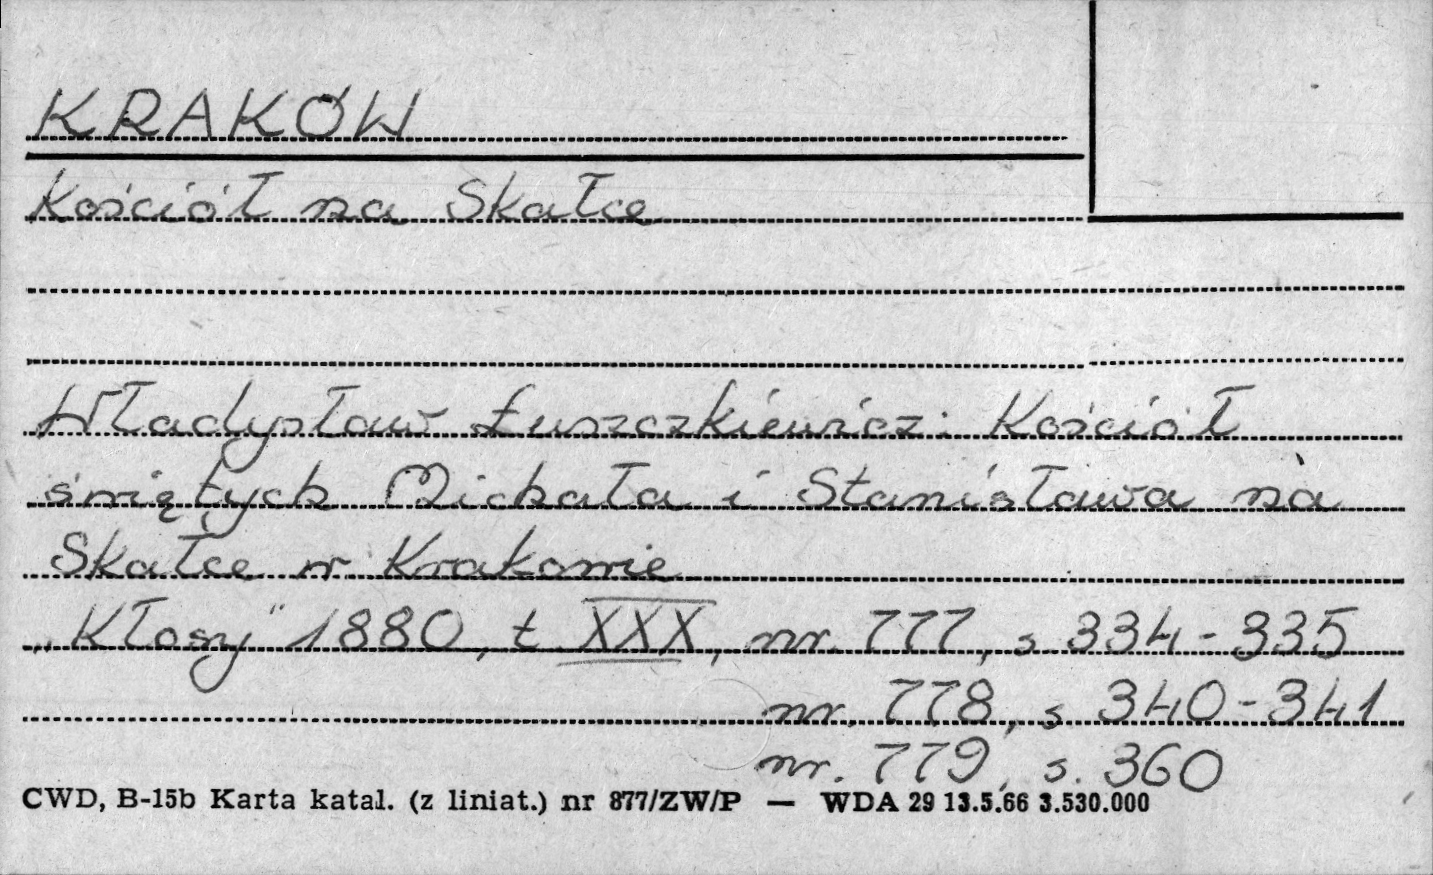 KRAKÓW
Kościół na Skałce
Władysław Łuszczkiewicz: Kościół
świętych Michała i Stanisława na
Skałce w Krakowie
„Kłosy" 1880, t. XXX, nr. 777, s. 334-335
nr. 778, s. 340-341
nr. 779, s. 360
CWD, B-15b Karta katal. (z liniat.) nr 877/ZW/P — WDA 29 13.5.66 3.530.000